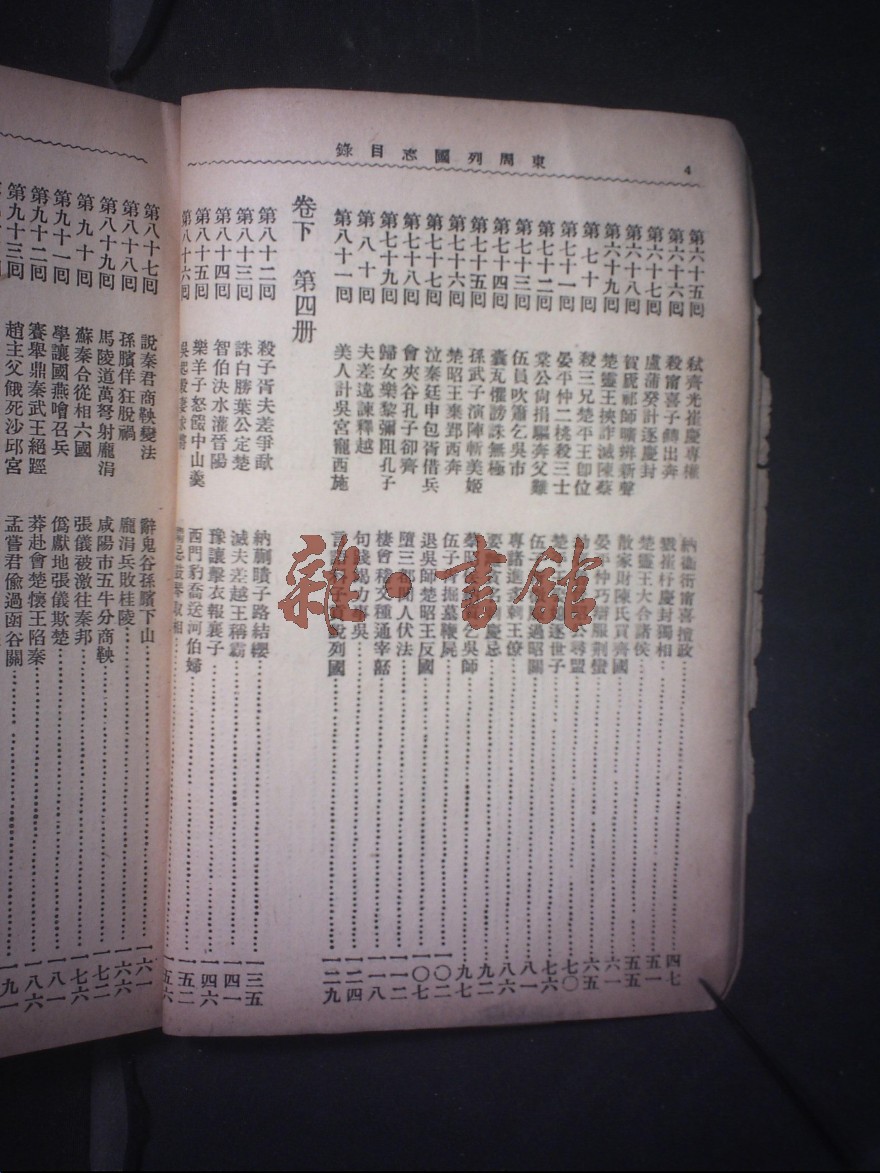 東周列國志目錄
4
第六十五囘 弒齊光崔慶專權 納衞衎甯喜擅政 四七
第六十六囘 殺甯喜子鱄出奔 戮崔杼慶封獨相 五一
第六十七囘 盧蒲癸計逐慶封 楚靈王大合諸侯 五五
第六十八囘 賀虒祁師曠辨新聲 散家財陳氏買齊國 六一
第六十九囘 楚靈王挾詐滅陳蔡 晏平仲巧辯服荊蠻 六五
第七十囘 殺三兄楚平王卽位 公尋盟 七〇
第七十一囘 晏平仲二桃殺三士 楚 逐世子 七六
第七十二囘 棠公尚捐軀奔父難 伍 過昭關 八一
第七十三囘 伍員吹簫乞吳市 專諸進炙刺王僚 八六
第七十四囘 囊瓦懼謗誅無極 要 貪名 慶忌 九二
第七十五囘 孫武子演陣斬美姬 蔡昭 乞吳師 九七
第七十六囘 楚昭王棄郢西奔 伍子胥掘墓鞭屍 一〇二
第七十七囘 泣秦廷申包胥借兵 退吳師楚昭王反國 一〇七
第七十八囘 會夾谷孔子卻齊 墮三都聞人伏法 一一二
第七十九囘 歸女樂黎彌阻孔子 棲會稽文種通宰嚭 一一八
第八十囘 夫差違諫釋越 句踐竭力事吳 一二四
第八十一囘 美人計吳宮寵西施 言語科子貢說列國 一二九
卷下 第四册
第八十二囘 殺子胥夫差爭歃 納蒯聵子路結纓 一三五
第八十三囘 誅白勝葉公定楚 滅夫差越王稱霸 一四一
第八十四囘 智伯決水灌晉陽 豫讓擊衣報襄子 一四六
第八十五囘 樂羊子怒餟中山羹 西門豹喬送河伯婦 一五二
第八十六囘 吳起殺妻求將 騶忌鼓琴取相 一五六
第八十七囘 說秦君商鞅變法 辭鬼谷孫臏下山 一六一
第八十八囘 孫臏佯狂脫禍 龐涓兵敗桂陵 一六六
第八十九囘 馬陵道萬弩射龐涓 咸陽市五牛分商鞅 一七二
第九十囘 蘇秦合從相六國 張儀被激往秦邦 一七六
第九十一囘 學讓國燕噲召兵 僞獻地張儀欺楚 一八一
第九十二囘 賽舉鼎秦武王絕脛 莽赴會楚懷王陷秦 一八六
第九十三囘 趙主父餓死沙邱宮 孟嘗君偷過函谷關 一九一
雜·書館